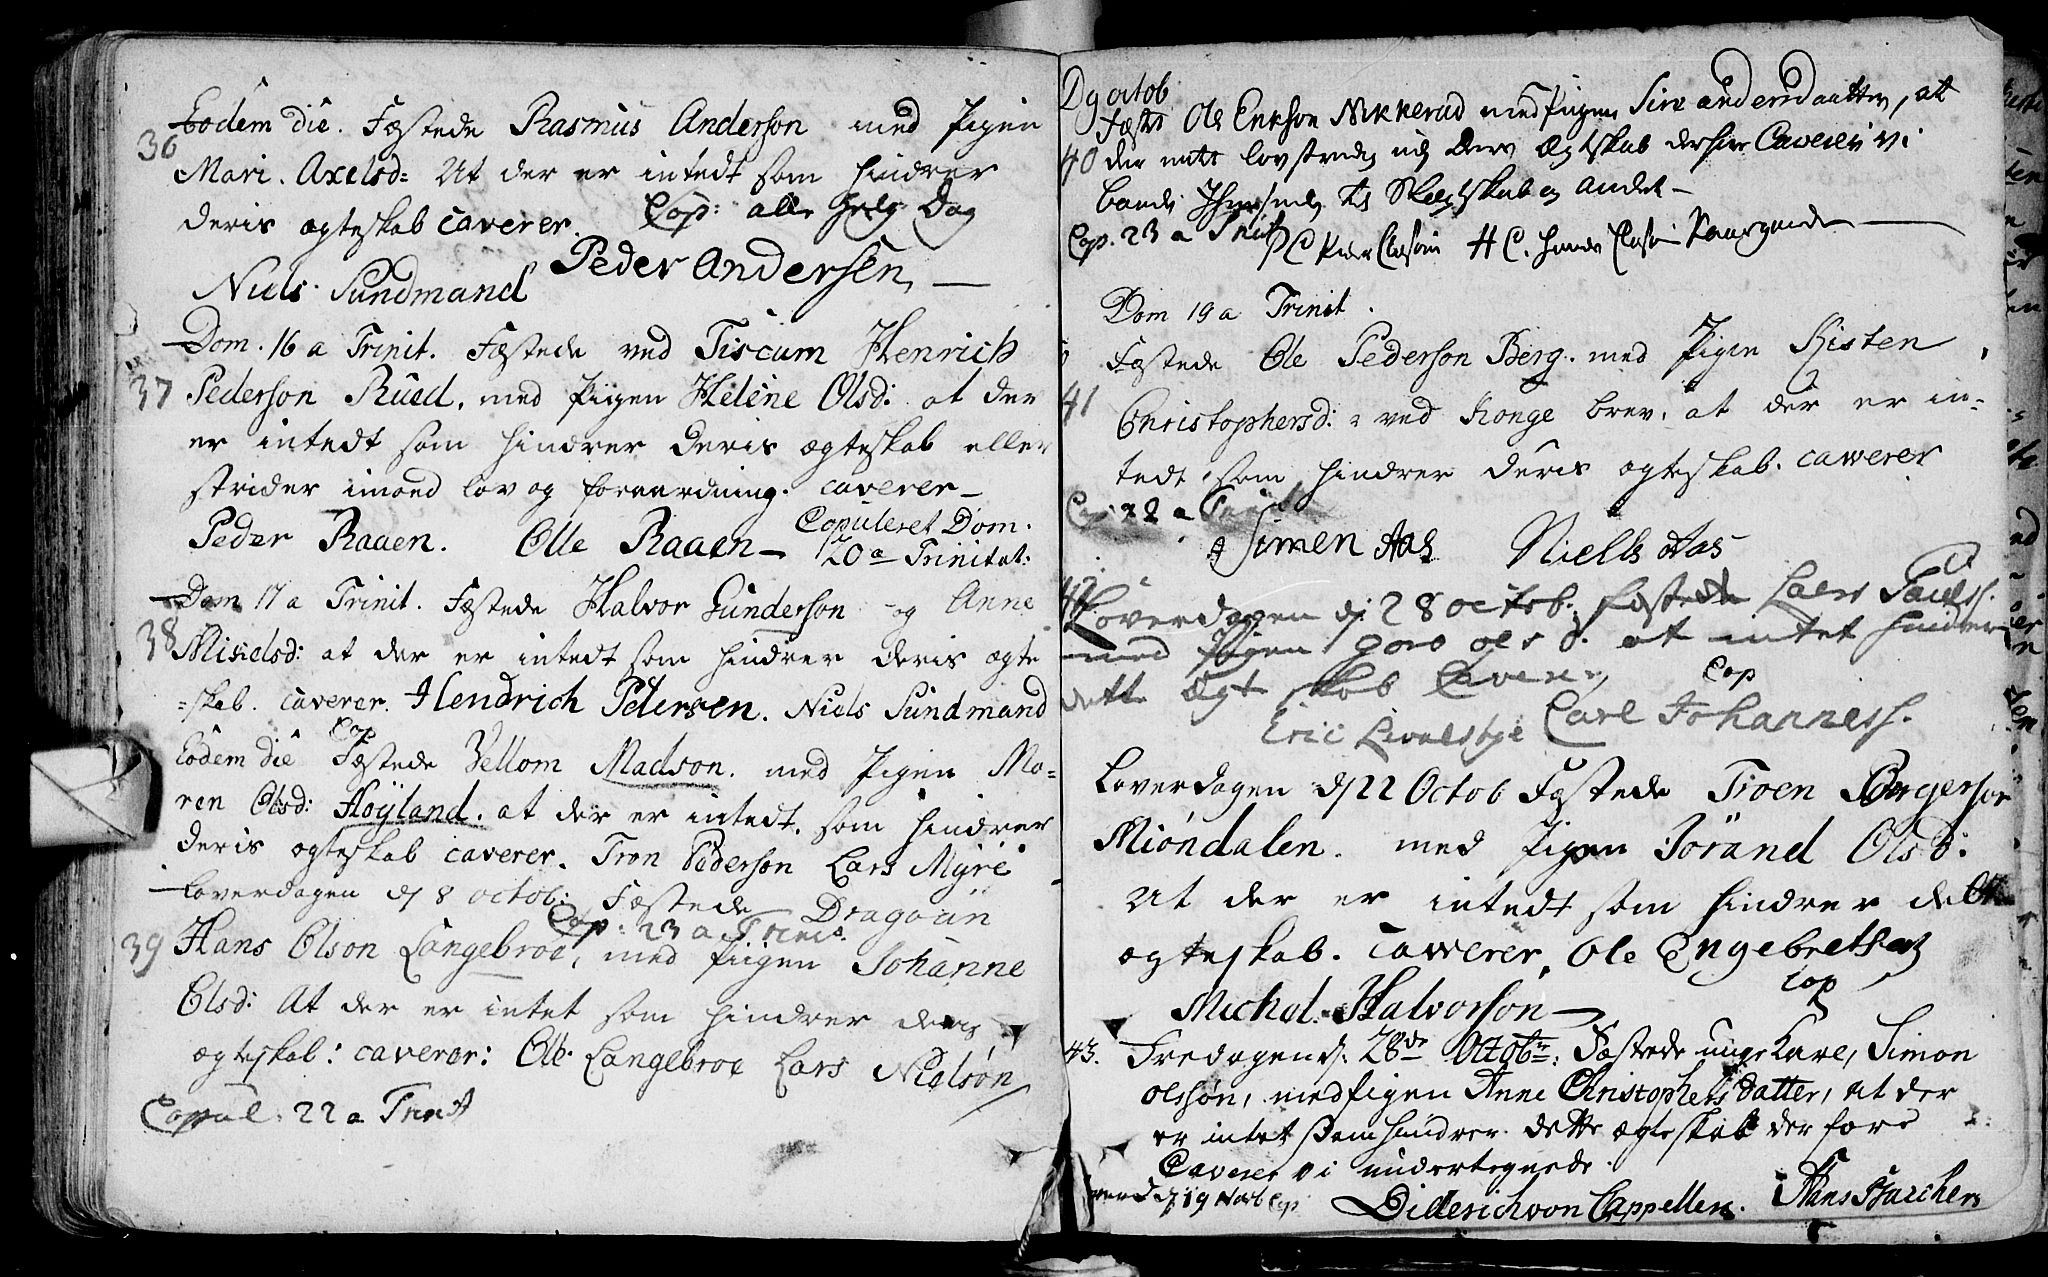 Eodem die. Fæstede Rasmus Anderson med Pigen
36
Mari. Axelsd= At der er intedt som hindrer
deris ægteskab caverer. Cop: alle helg Dag
Peder Andersen,
Niels Sundmand
Dom. 16 a Trinit. Fæstede ved Tiscum Henrich
37 Pederson Rued, med Pigen Helene Olsd: at der
er intedt som hindrer deris ægteskab eller
strider imoed lov og foraardning. caverer
Peder Raaen. Olle Raaen Copuleret Dom.
20 a Trinitat:
Dom 17 a Trinit. Fæstede Halvor Gunderson og Anne
38 Mikelsd: at der er intedt som hindrer deris ægte
=skab. caverer. Hendrich Petersen. Niels Sundmand
Cop
Eodem die Fæstede Vellom Madson. med Pigen Ma=
ren Olsd: Høyland. at der er intedt. som hindrer
deris ægteskab caverer. Tron Pederson Lars Myre
Løverdagen dj 8 octob: Fæstede Dragoun
Cop: 23 a Trinit
39 Hans Olson Langebroe, med Pigen Johanne
Olsd: At der er intet som hindrer deris
ægteskab: caverer: Ole Langebroe Lars Nielsøn
Copul: 22 a Trinit
D 9 octob
Fæste Ole Erikson Nekkerud med Pigen Siri andersdaatter, att
40 der intet lovstridig udj deris Ægtskab derfore Caverer vi
baade Skyldskab og andet
Cop. 23 a Trinit
PC Peder Clasøn HC. Hans Clasøn
Dom 19 a Trinit.
Fæstede Ole Pederson Berg. med Pigen Kisten
41 Christophersd: ved Konge brev. at der er in=
tedt som hindrer deris ægteskab. caverer
Cop: 22 a Trinit
Simen Aas Niells Aas
42
Løverdagen dj 28 octob. fæstede Laers Paulss.
med Pigen goro ols d. at intet hindrer
dette Ægt skab Caverer Cop
Eric Carl Johanness.
Løverdagen dj 22 Octob Fæstede Troen Borgerson
Miøndalen. med Pigen Jörand Olsd:
At der er intedt som hindrer dette
ægteskab. caverer. Ole Engebretsen
Cop
Michel Halvorson
43. Fredagen d: 28de Octobr: Fæstede unge Karl, Simon
olssøn, med Pigen Anne Christophersdatter, at der
er intet som hindrer dette ægteskab der fore
Caverer vi undertegnede.
dj 19 Cop
Diderich von Cappellen. Hans